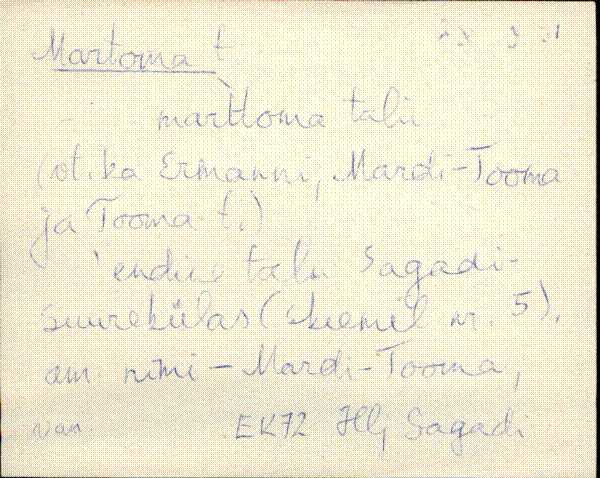 Martoma t
marttoma talu
(vt. ka Ermanni, Mardi-Tooma
ja Tooma t.)
endine talu Sagadi-
Suurekülas (skeemil nr. 5),
am. nimi - Mardi-Tooma,
van. EK72 Hlj Sagadi